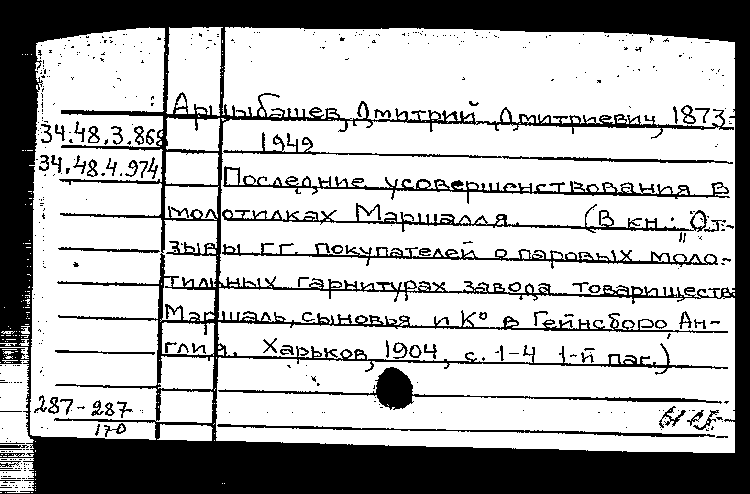 Арцыбашев, Дмитрий Дмитриевич, 1873-
34.48.3.868 1949
34.48.4.974
Последние усовершенствования в
молотилках Маршалля. (В кн.: От-
зывы г.г. покупателей о паровых моло-
тильных гарнитурах завода товарищества
Маршаль, сыновья и К° в Гейнсборо, Ан-
глия. Харьков, 1904, с. 1-4 1-й паг.)
287-287
170